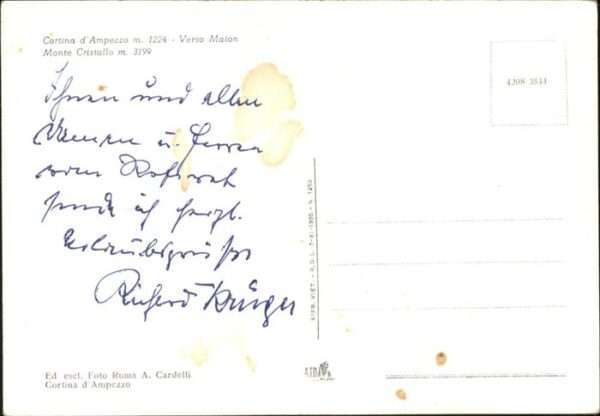 Cortina d'Ampezzo m. 1224 - Verso Maion
Monte Cristallo m. 3199
4208 3544
Ihnen und allen
Damen u. Herren
vom Referat
sende ich herzl.
Urlaubsgrüße
Richard Krüger
Ed escl. Foto Roma A. Cardelli
Cortina d'Ampezzo